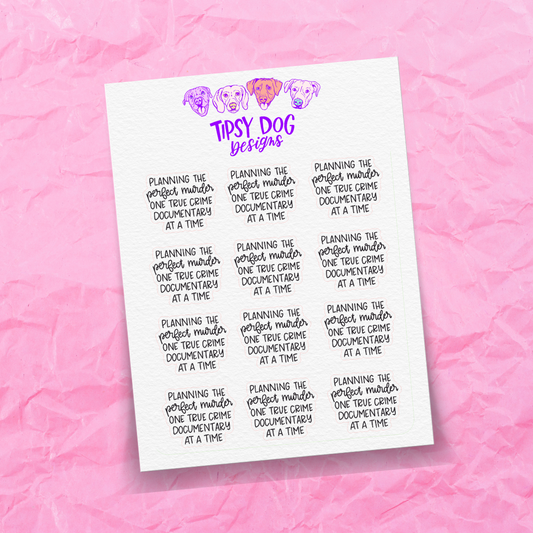 TIPSY DOG
Designs
PLANNING THE
perfect murder
ONE TRUE CRIME
DOCUMENTARY
AT A TIME
PLANNING THE
perfect murder
ONE TRUE CRIME
DOCUMENTARY
AT A TIME
PLANNING THE
perfect murder
ONE TRUE CRIME
DOCUMENTARY
AT A TIME
PLANNING THE
perfect murder
ONE TRUE CRIME
DOCUMENTARY
AT A TIME
PLANNING THE
perfect murder
ONE TRUE CRIME
DOCUMENTARY
AT A TIME
PLANNING THE
perfect murder
ONE TRUE CRIME
DOCUMENTARY
AT A TIME
PLANNING THE
perfect murder
ONE TRUE CRIME
DOCUMENTARY
AT A TIME
PLANNING THE
perfect murder
ONE TRUE CRIME
DOCUMENTARY
AT A TIME
PLANNING THE
perfect murder
ONE TRUE CRIME
DOCUMENTARY
AT A TIME
PLANNING THE
perfect murder
ONE TRUE CRIME
DOCUMENTARY
AT A TIME
PLANNING THE
perfect murder
ONE TRUE CRIME
DOCUMENTARY
AT A TIME
PLANNING THE
perfect murder
ONE TRUE CRIME
DOCUMENTARY
AT A TIME